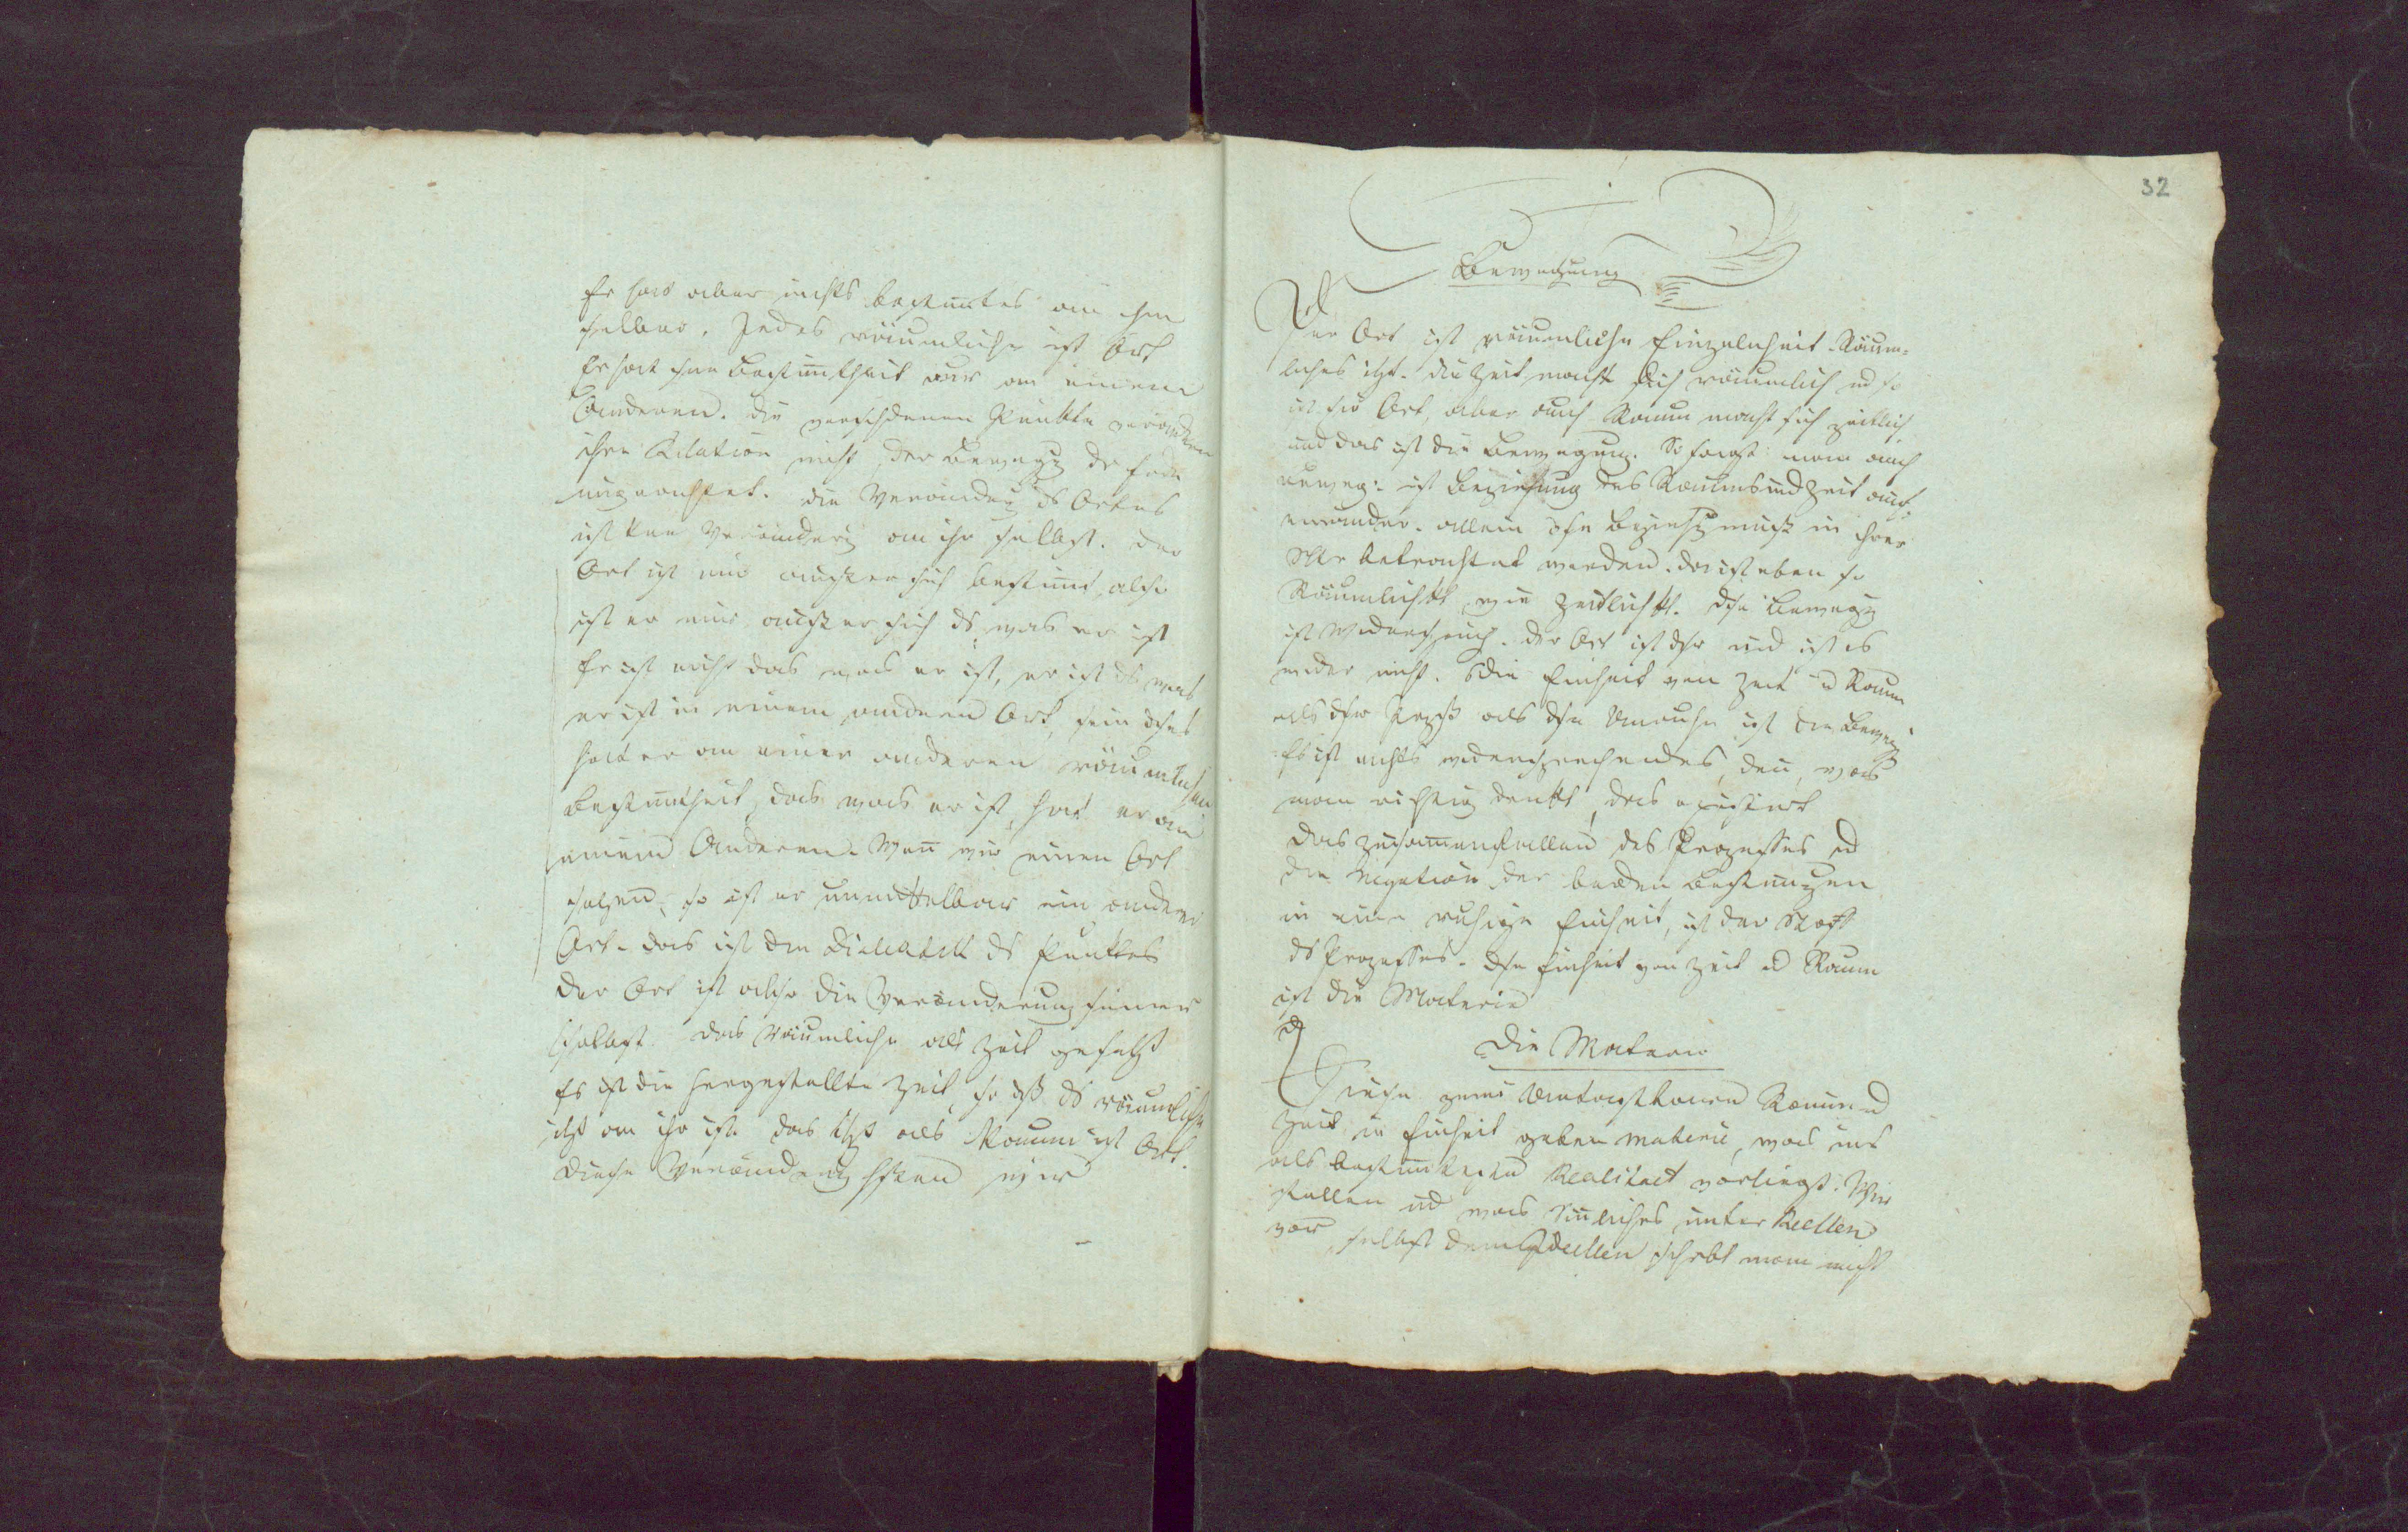 Er hat aber nichts bestimtes an ihm
selber. Jedes räumliche ist Ort
Er hat seine Bestimtheit nur an einem
Anderen. die verschiedenen Punkte verändern
ihre Relation nicht der Bewegg der Erde
ungeachtet. die Veränderg ds Ortes
ist keine Veränderg an ihr selbst. der
Ort ist nur ausser sich bestimt, also
ist er nur ausser sich ds was er ist
Er ist nicht das was er ist, er ist ds was
er ist in einem anderen Ort, sein dieses
hat er an einer anderen räumlichen
Bestimtheit, das was er ist, hat er an
einem Anderen. Wenn wir einen Ort
setzen, so ist er unmittelbar ein anderer
Ort. das ist die Dialektik ds Punktes
der Ort ist also die Veränderung seiner
selbst. das räumliche als Zeit gesetzt
Es ist die hergestellte Zeit, so dß ds räumliche
itzt an ihr ist. das itzt als Raum ist Ort.
diese Veränderg
32
Bewegung
Der Ort ist räumliche Einzelnheit. Räum-
liches itzt. die Zeit macht sich räumlich ud so
ist sie Ort, aber auch Raum macht sich zeitlich
und das ist die Bewegung. So sagt man auch
Beweg: ist Beziehung des Raums und Zeit auf
einander. allein diese Beziehg muß in ihrer
betrachtet werden. da ist eben so
Räumlichkt wie Zeitlichkt. diese Bewegg
ist Widerspruch. der Ort ist dieser und ist es
wieder nicht. die Einheit von Zeit u Raum
als dieser Prozeß als diese Unruhe ist die Bewegg
Es ist nichts widersprechendes, denn, was
man richtig denkt, das existirt
das zusammenfallen des Prozesses ud
die Negation der beiden Bestimgen
in eine ruhige Einheit, ist der Stoff
ds Prozesses. diese Einheit von Zeit ud Raum
ist die Materie
die Materie
Diese zwei Abstraktionen Raum ud
Zeit in Einheit geben Materie, was uns
als Realitaet vorliegt. Wir
stellen uns was Sinnliches unter Reellen
vor, selbst dem Ideellen schebt man nicht